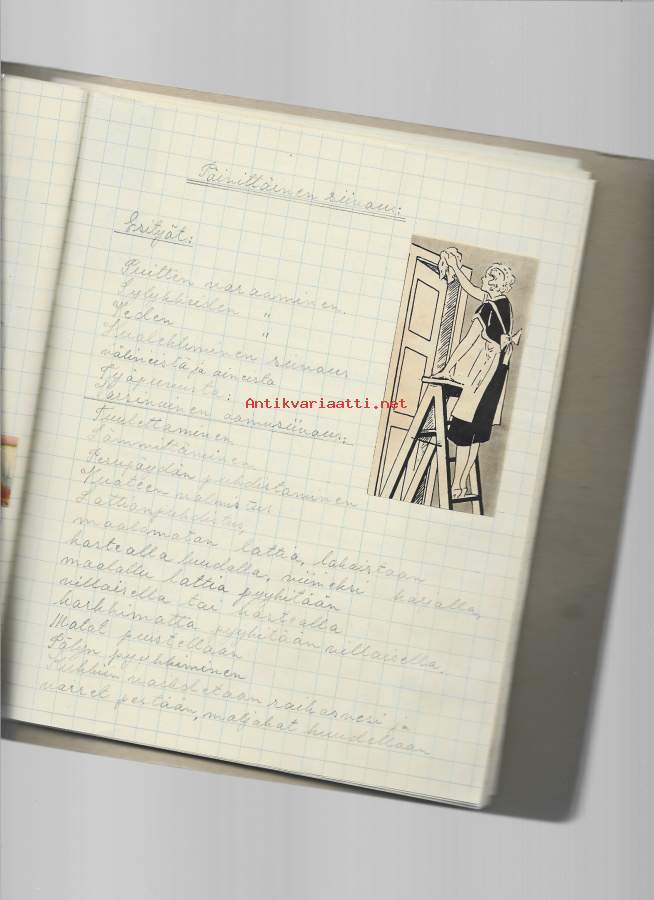 Päivittäinen siivous:
Esityöt:
Puitten varaaminen.
Sytykkeiden "
Veden "
Huolehtiminen siivous
välineistä ja aineista
Työpuvusta:
Varsinainen aamusiivous:
Tuulettaminen
Lämmittäminen
Pesupöydän puhdistaminen
Vuoteen valmistus
Lattianpuhdistus,
maalamaton lattia, lakaistaan
kostealla luudalla, viimeksi harjalla,
maalattu lattia pyyhitään
villaisella tai kostealla
korkkimatto pyyhitään villaisella.
Matot puistellaan
Pölyn pyyhkiminen
Kukkiin vaihdetaan raikasvesi ja
varret pestään, maljakot huuhdellaan
Antikvariaatti.net